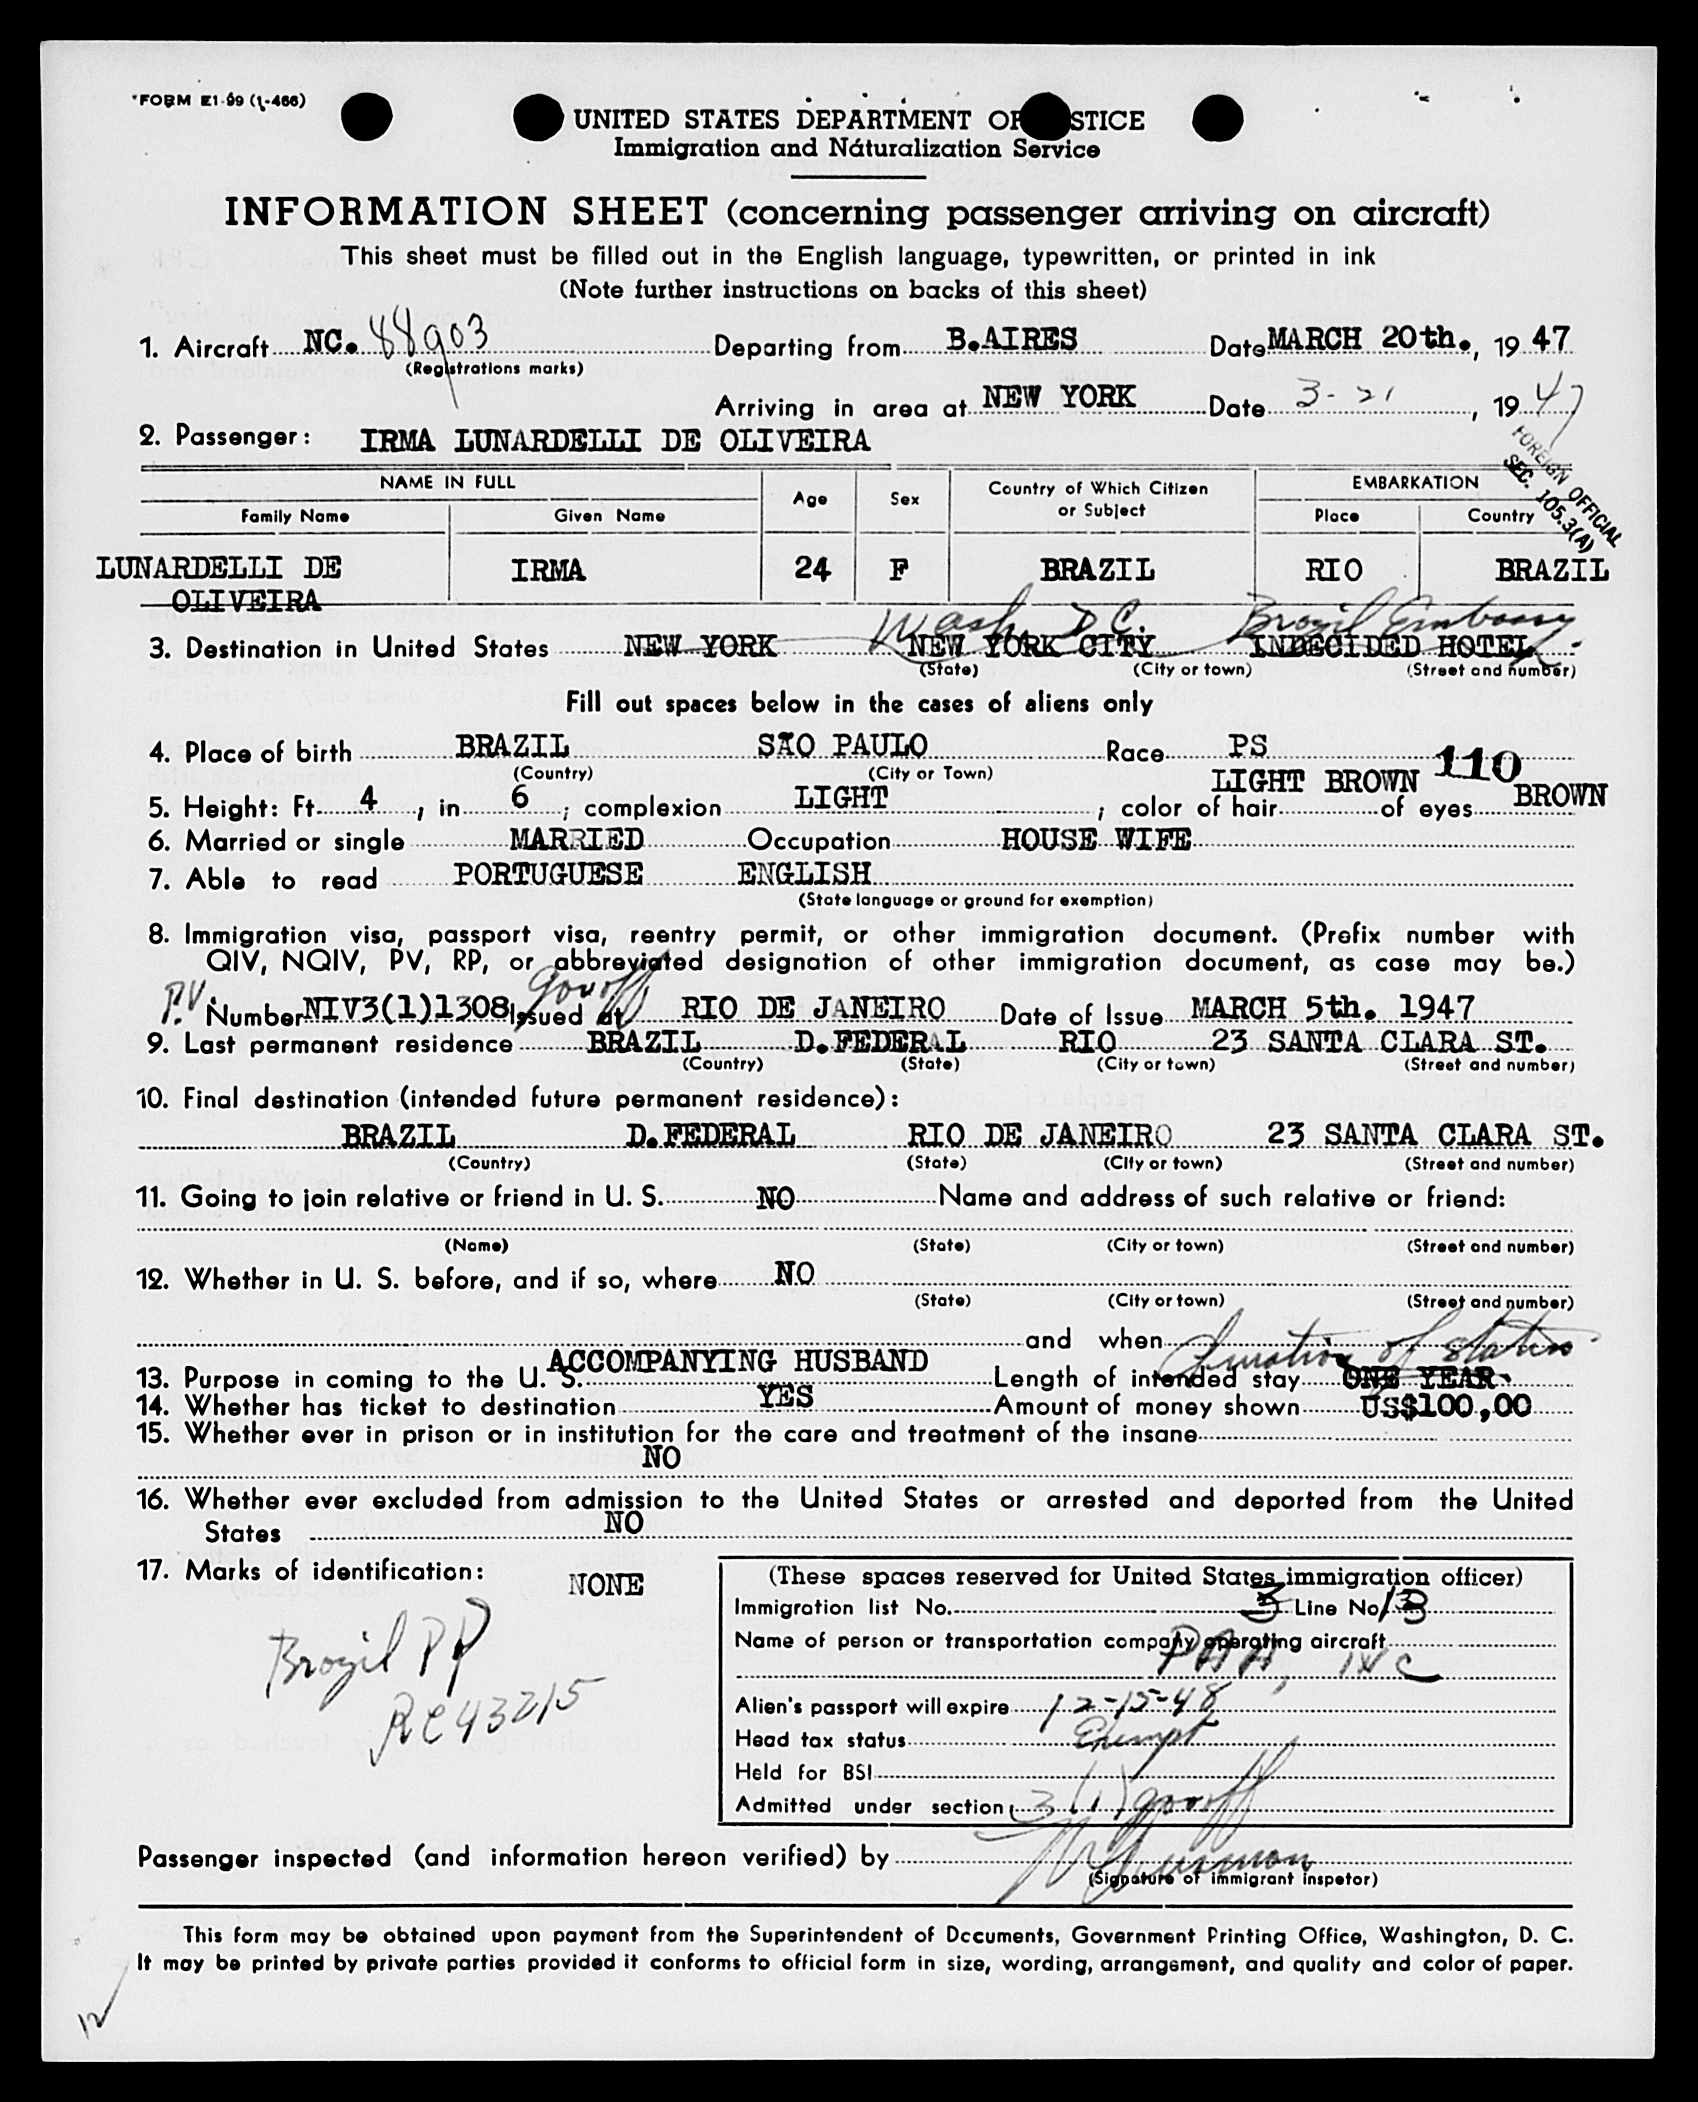 FORM E1-99 (1-466)
UNITED STATES DEPARTMENT OF STICE
Immigration and Naturalization Service
INFORMATION SHEET (concerning passenger arriving on aircraft)
This sheet must be filled out in the English language, typewritten, or printed in ink
(Note further instructions on backs of this sheet)
1. Aircraft NC. 88903 Departing from B.AIRES Date MARCH 20th., 19 47
(Registrations marks)
Arriving in area at NEW YORK Date 3-21, 19 47
2. Passenger: IRMA LUNARDELLI DE OLIVEIRA
FOREIGN OFFICIAL
SEC. 105.3(A)
NAME IN FULL Age Sex Country of Which Citizen or Subject EMBARKATION
Family Name Given Name Place Country
LUNARDELLI DE IRMA 24 F BRAZIL RIO BRAZIL
OLIVEIRA
Wash. D C. Brazil Embassy
3. Destination in United States NEW YORK NEW YORK CITY INDECIDED HOTEL
(State) (City or town) (Street and number)
Fill out spaces below in the cases of aliens only
4. Place of birth BRAZIL SÃO PAULO Race PS
(Country) (City or Town)
110
5. Height: Ft. 4, in. 6; complexion LIGHT; color of hair LIGHT BROWN of eyes BROWN
6. Married or single MARRIED Occupation HOUSE WIFE
7. Able to read PORTUGUESE ENGLISH
(State language or ground for exemption)
8. Immigration visa, passport visa, reentry permit, or other immigration document. (Prefix number with
QIV, NQIV, PV, RP, or abbreviated designation of other immigration document, as case may be.)
P.V. Number NIV3(1)1308 govoff Issued at RIO DE JANEIRO Date of Issue MARCH 5th. 1947
9. Last permanent residence BRAZIL D.FEDERAL RIO 23 SANTA CLARA ST.
(Country) (State) (City or town) (Street and number)
10. Final destination (intended future permanent residence):
BRAZIL D.FEDERAL RIO DE JANEIRO 23 SANTA CLARA ST.
(Country) (State) (City or town) (Street and number)
11. Going to join relative or friend in U. S. NO Name and address of such relative or friend:
(Name) (State) (City or town) (Street and number)
12. Whether in U. S. before, and if so, where NO
(State) (City or town) (Street and number)
and when
duration of status
13. Purpose in coming to the U. S. ACCOMPANYING HUSBAND Length of intended stay ONE YEAR
14. Whether has ticket to destination YES Amount of money shown US$100,00
15. Whether ever in prison or in institution for the care and treatment of the insane
NO
16. Whether ever excluded from admission to the United States or arrested and deported from the United
States NO
17. Marks of identification: NONE
Brazil PP
RC43215
(These spaces reserved for United States immigration officer)
Immigration list No. 3 Line No. 13
Name of person or transportation company operating aircraft
PAA, INC
Alien's passport will expire 12-15-48
Head tax status Exempt
Held for BSI
Admitted under section 3(1) govoff
Passenger inspected (and information hereon verified) by
(Signature of immigrant inspetor)
This form may be obtained upon payment from the Superintendent of Documents, Government Printing Office, Washington, D. C.
It may be printed by private parties provided it conforms to official form in size, wording, arrangement, and quality and color of paper.
12